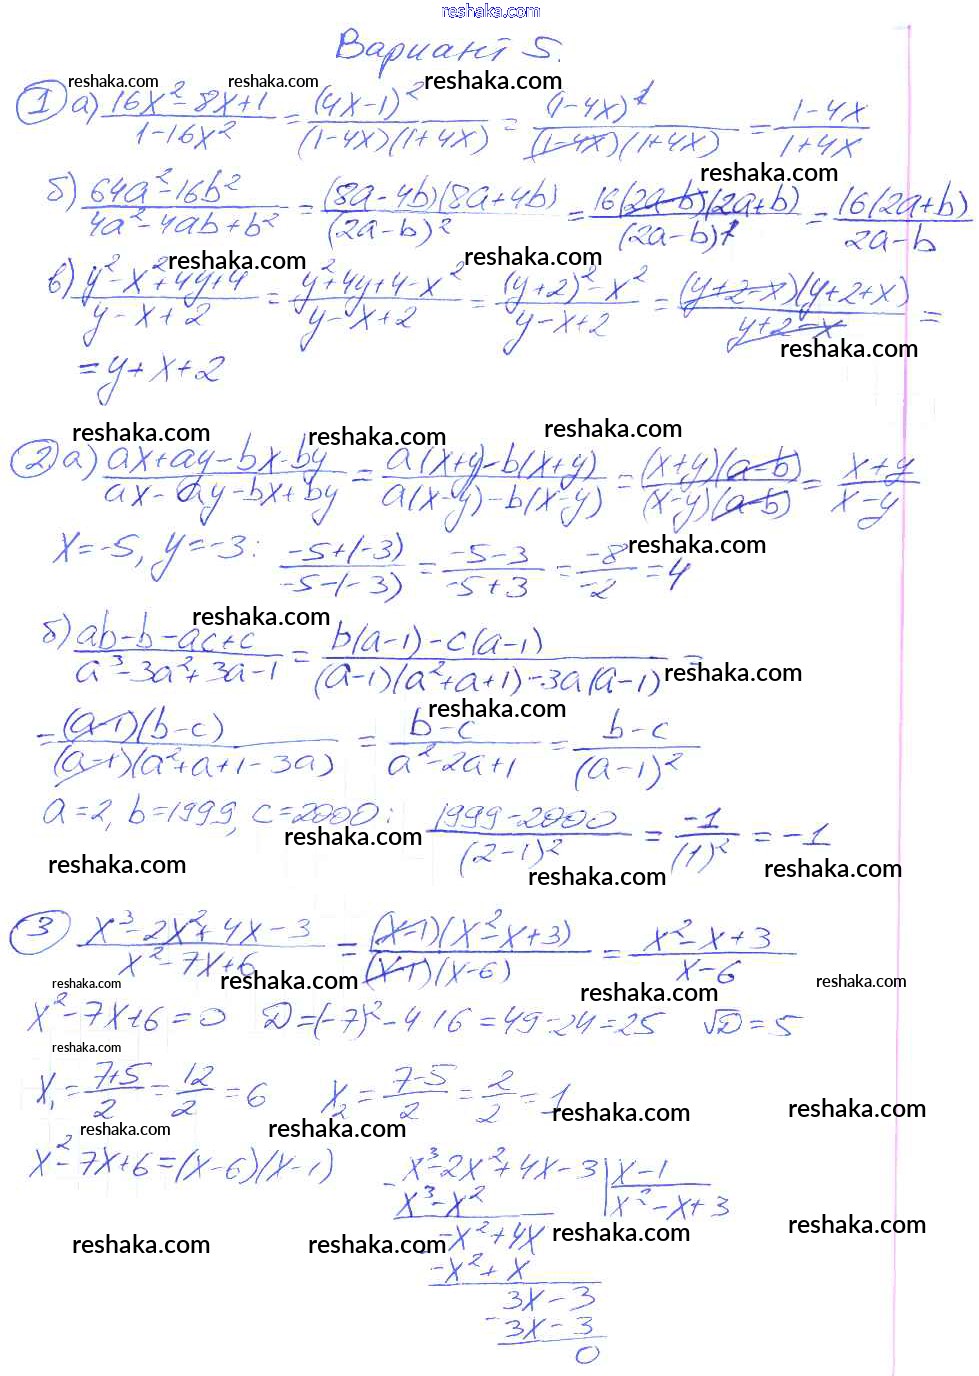 reshaka.com
Вариант 5.
reshaka.com reshaka.com reshaka.com
① а) (16x² - 8x + 1)/(1 - 16x²) = (4x - 1)²/((1 - 4x)(1 + 4x)) = (1 - 4x)²/((1 - 4x)(1 + 4x)) = (1 - 4x)/(1 + 4x)
reshaka.com
б) (64a² - 16b²)/(4a² - 4ab + b²) = ((8a - 4b)(8a + 4b))/(2a - b)² = (16(2a - b)(2a + b))/(2a - b)² = (16(2a + b))/(2a - b)
reshaka.com reshaka.com
в) (y² - x² + 4y + 4)/(y - x + 2) = (y² + 4y + 4 - x²)/(y - x + 2) = ((y + 2)² - x²)/(y - x + 2) = ((y + 2 - x)(y + 2 + x))/(y + 2 - x) =
reshaka.com
= y + x + 2
reshaka.com reshaka.com reshaka.com
② а) (ax + ay - bx - by)/(ax - ay - bx + by) = (a(x + y) - b(x + y))/(a(x - y) - b(x - y)) = ((x + y)(a - b))/((x - y)(a - b)) = (x + y)/(x - y)
x = -5, y = -3: (-5 + (-3))/(-5 - (-3)) = (-5 - 3)/(-5 + 3) = (-8)/(-2) = 4
reshaka.com
reshaka.com
б) (ab - b - ac + c)/(a³ - 3a² + 3a - 1) = (b(a - 1) - c(a - 1))/((a - 1)(a² + a + 1) - 3a(a - 1)) =
reshaka.com
reshaka.com
= ((a - 1)(b - c))/((a - 1)(a² + a + 1 - 3a)) = (b - c)/(a² - 2a + 1) = (b - c)/(a - 1)²
a = 2, b = 1999, c = 2000: (1999 - 2000)/(2 - 1)² = (-1)/(1)² = -1
reshaka.com
reshaka.com reshaka.com reshaka.com
③ (x³ - 2x² + 4x - 3)/(x² - 7x + 6) = ((x - 1)(x² - x + 3))/((x - 1)(x - 6)) = (x² - x + 3)/(x - 6)
reshaka.com reshaka.com reshaka.com reshaka.com
x² - 7x + 6 = 0 D = (-7)² - 4 1 6 = 49 - 24 = 25 √D = 5
reshaka.com
x₁ = (7 + 5)/2 = 12/2 = 6 x₂ = (7 - 5)/2 = 2/2 = 1
reshaka.com reshaka.com
reshaka.com reshaka.com
x² - 7x + 6 = (x - 6)(x - 1)
- x³ - 2x² + 4x - 3 | x - 1
x³ - x² | x² - x + 3
reshaka.com reshaka.com
- x² + 4x
reshaka.com reshaka.com
- x² + x
3x - 3
- 3x - 3
0